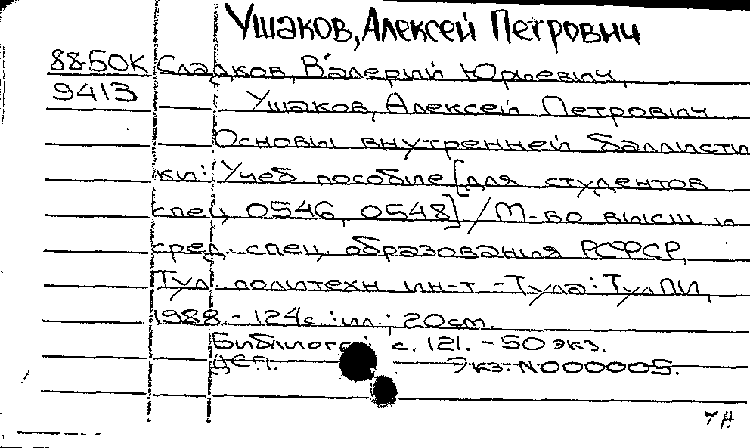 Ушаков, Алексей Петрович
88-50К Сладков, Валерий Юрьевич,
9413 Ушаков, Алексей Петрович
Основы внутренней баллисти
ки: Учеб пособие [для студентов
спец 0546, 0548] / М-во высш и
сред. спец. образования РСФСР,
Тул. политехн ин-т - Тула: ТулПИ,
1988. - 124с.: ил; 20см.
Библиогр с. 121. - 50 экз.
деп. Экз: N000005.